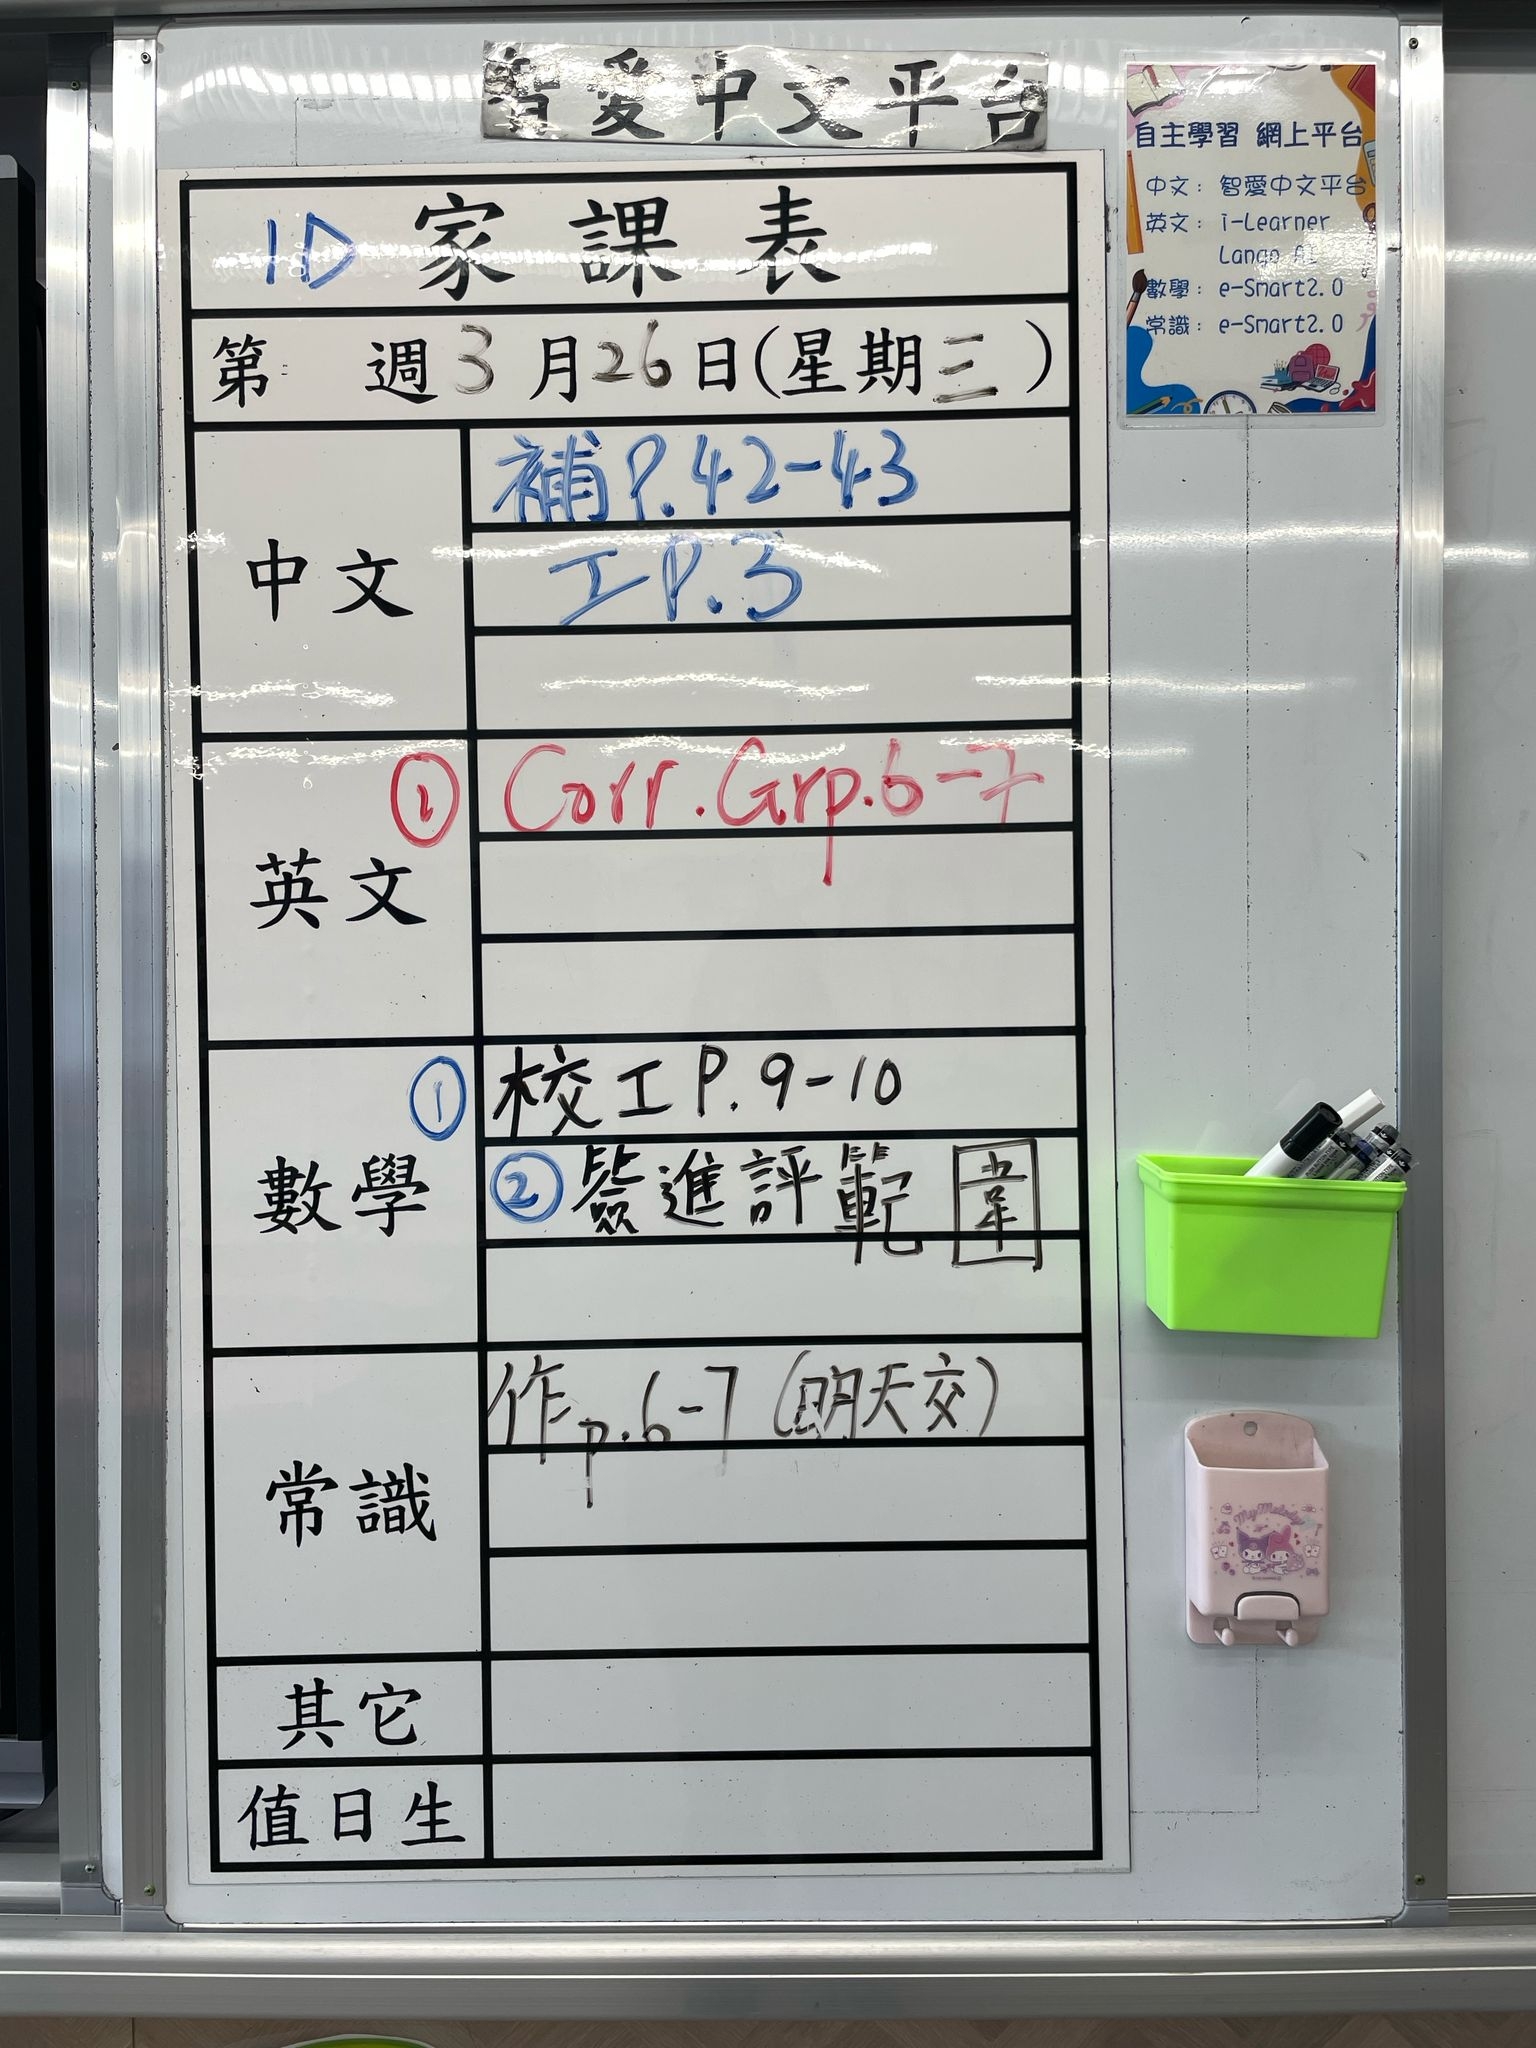 智愛中文平台
自主學習 網上平台
中文：智愛中文平台
英文：i-Learner
Lango AI
數學：e-Smart2.0
常識：e-Smart2.0
1D 家課表
第 週 3月26日(星期三)
中文
補P.42-43
工P.3
英文
① Corr.Grp.6-7
數學
① 校工P.9-10
② 簽進評範圍
常識
作p.6-7(明天交)
其它
值日生
My Melody